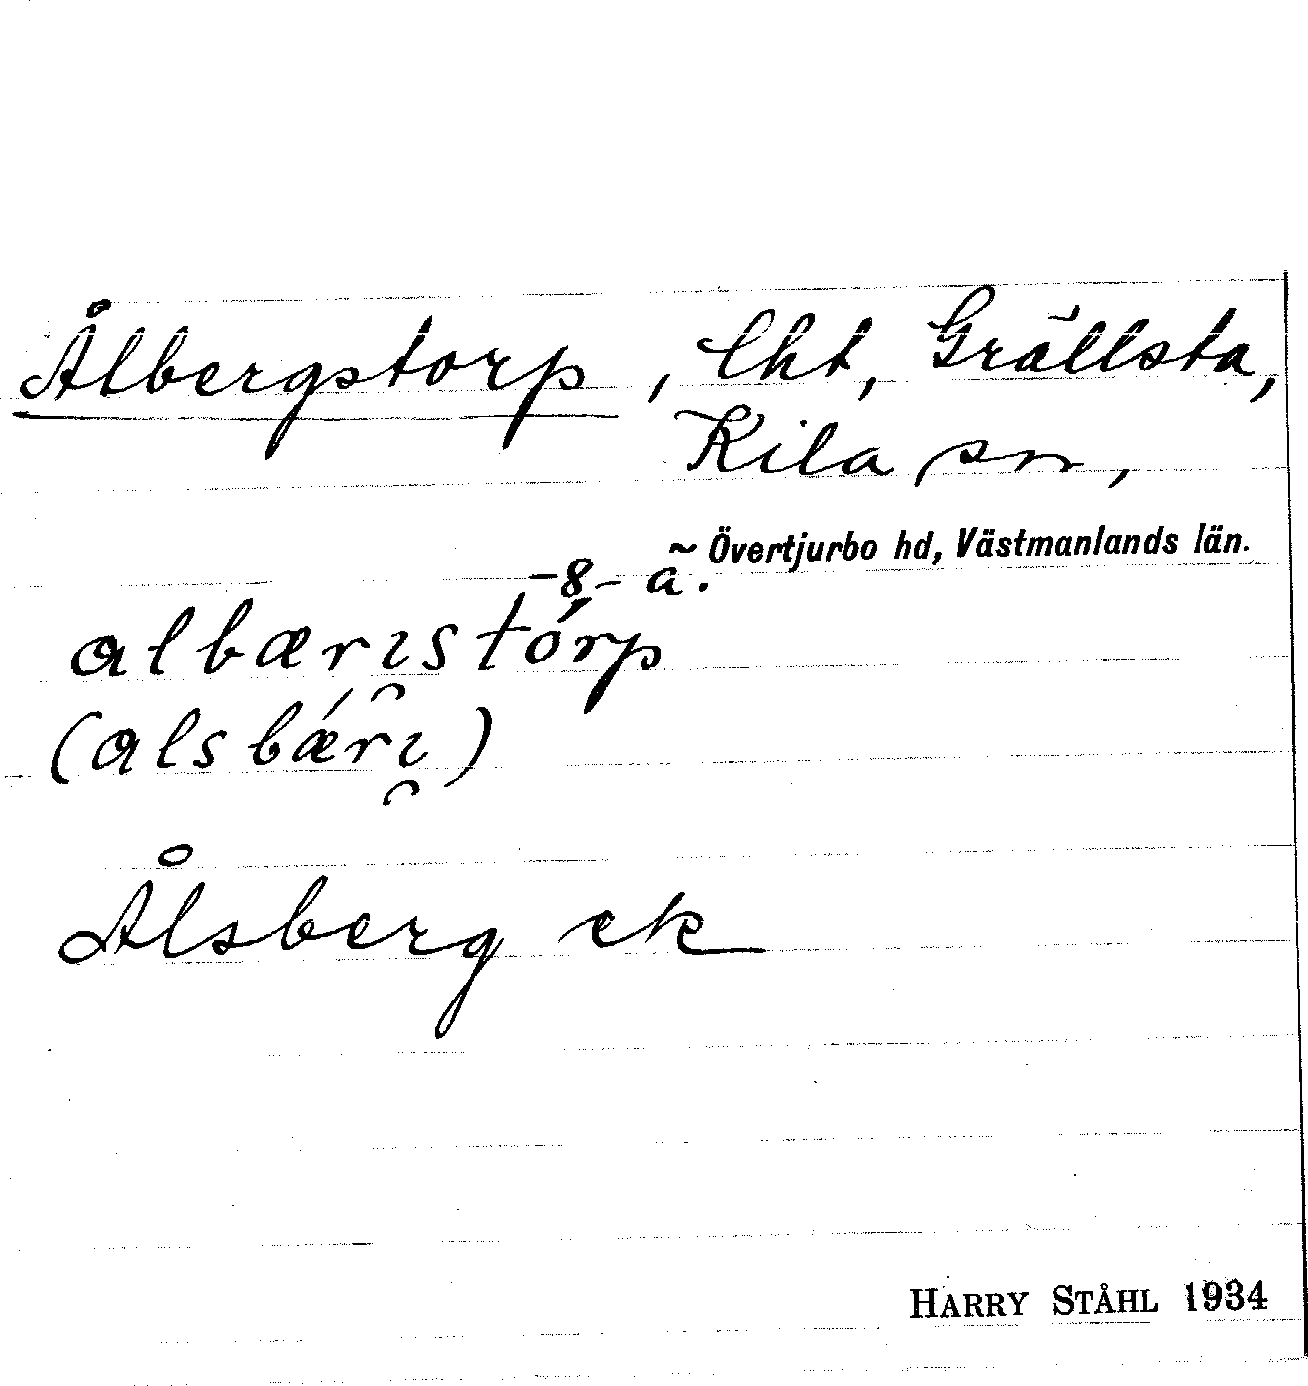 Ålbergstorp, lht, Grällsta,
Kila sn,
~ Övertjurbo hd, Västmanlands län.
-8- a.
albærıs tórp
(alsbǽrı)
Ålsberg ek
HARRY STÅHL 1934